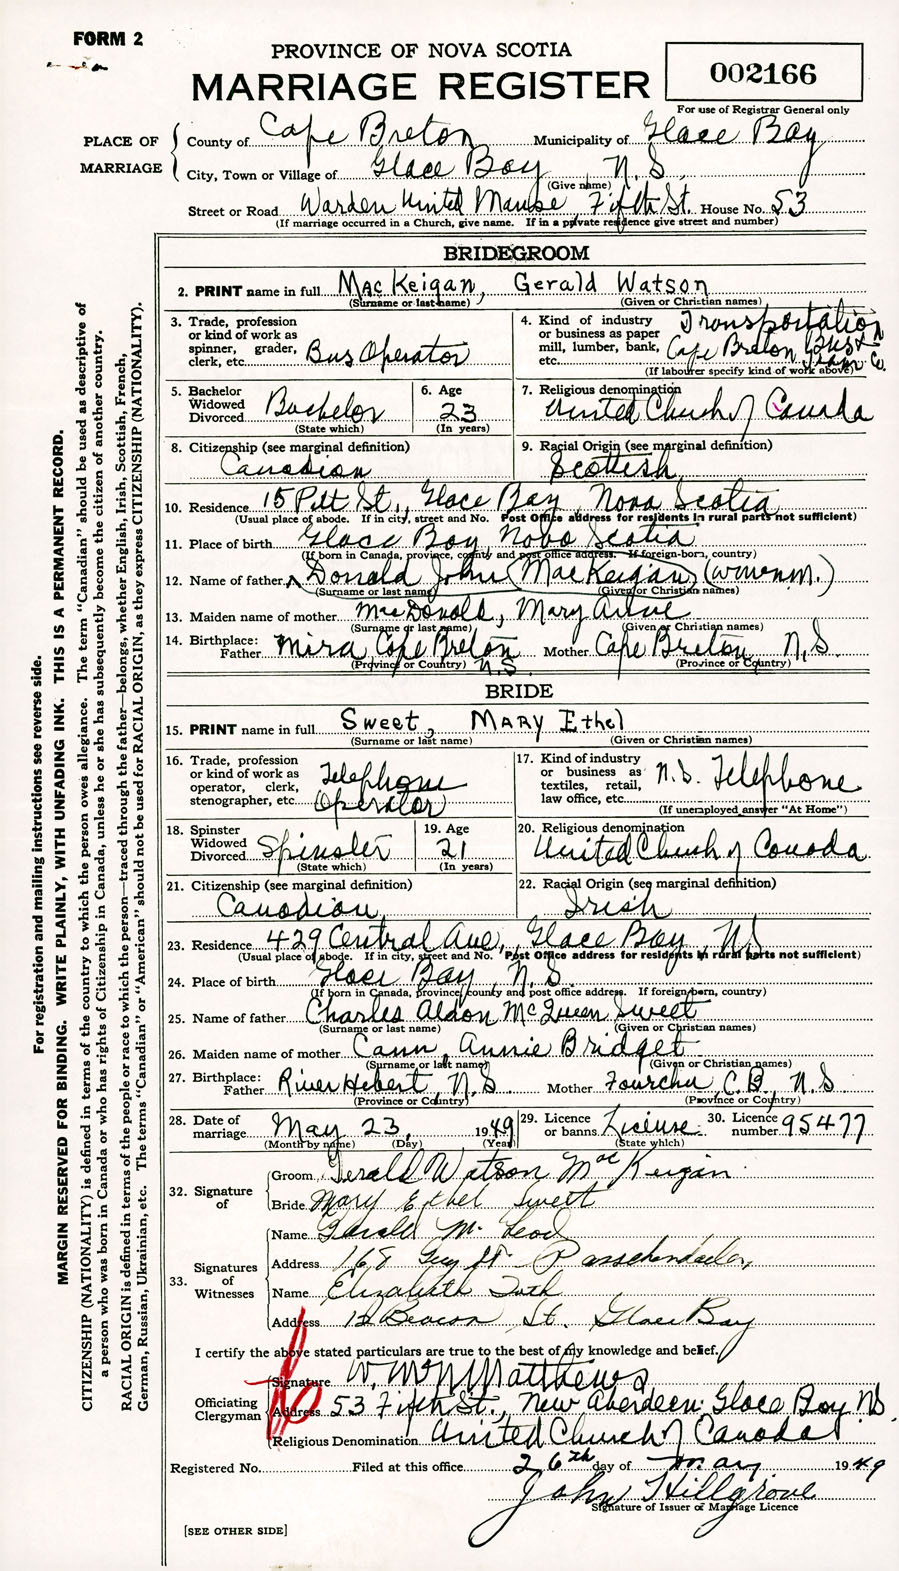 FORM 2
PROVINCE OF NOVA SCOTIA
MARRIAGE REGISTER
002166
For use of Registrar General only
PLACE OF MARRIAGE
County of Cape Breton Municipality of Glace Bay
City, Town or Village of Glace Bay N.S.
(Give name)
Street or Road Warden United Manse Fifth St. House No. 53
(If marriage occurred in a Church, give name. If in a private residence give street and number)
BRIDEGROOM
2. PRINT name in full MacKeigan, Gerald Watson
(Surname or last name) (Given or Christian names)
3. Trade, profession or kind of work as spinner, grader, clerk, etc. Bus Operator
4. Kind of industry or business as paper mill, lumber, bank, etc. Transportation Cape Breton Bus & Tram Co.
(If labourer specify kind of work above)
5. Bachelor Widowed Divorced Bachelor
(State which)
6. Age 23
(In years)
7. Religious denomination United Church of Canada
8. Citizenship (see marginal definition) Canadian
9. Racial Origin (see marginal definition) Scottish
10. Residence 15 Pitt St., Glace Bay Nova Scotia
(Usual place of abode. If in city, street and No. Post Office address for residents in rural parts not sufficient)
11. Place of birth Glace Bay Nova Scotia
(If born in Canada, province, county and post office address. If foreign-born, country)
12. Name of father Donald John (MacKeigan)
(Surname or last name) (Given or Christian names)
13. Maiden name of mother MacDonald, Mary
(Surname or last name) (Given or Christian names)
14. Birthplace: Father Mira, Cape Breton N.S. Mother Cape Breton, N.S.
(Province or Country) (Province or Country)
BRIDE
15. PRINT name in full Sweet, Mary Ethel
(Surname or last name) (Given or Christian names)
16. Trade, profession or kind of work as operator, clerk, stenographer, etc. Telephone Operator
17. Kind of industry or business as textiles, retail, law office, etc. N.S. Telephone
(If unemployed answer "At Home")
18. Spinster Widowed Divorced Spinster
(State which)
19. Age 21
(In years)
20. Religious denomination United Church of Canada
21. Citizenship (see marginal definition) Canadian
22. Racial Origin (see marginal definition) Irish
23. Residence 429 Central Ave., Glace Bay, N.S
(Usual place of abode. If in city, street and No. Post Office address for residents in rural parts not sufficient)
24. Place of birth Glace Bay, N.S.
(If born in Canada, province, county and post office address. If foreign-born, country)
25. Name of father Charles Aldon McQueen Sweet
(Surname or last name) (Given or Christian names)
26. Maiden name of mother Cann, Annie Bridget
(Surname or last name) (Given or Christian names)
27. Birthplace: Father River Hebert, N.S Mother Fourchu, C.B., N.S
(Province or Country) (Province or Country)
28. Date of marriage May 23, 1949
(Month by name) (Day) (Year)
29. Licence or banns License
(State which)
30. Licence number 95477
32. Signature of
Groom Gerald Watson MacKeigan
Bride Mary Ethel Sweet
33. Signatures of Witnesses
Name McLeod
Address 168 St. Passchendaele,
Name Elizabeth
Address 12 Beacon St. Glace Bay
I certify the above stated particulars are true to the best of my knowledge and belief.
Officiating Clergyman
Signature W. McN Matthews
Address 53 Fifth St., New Aberdeen Glace Bay N.S.
Religious Denomination United Church of Canada
Registered No. Filed at this office 26th day of May 1949
John Hillgrove
Signature of Issuer of Marriage Licence
[SEE OTHER SIDE]
For registration and mailing instructions see reverse side.
MARGIN RESERVED FOR BINDING. WRITE PLAINLY, WITH UNFADING INK. THIS IS A PERMANENT RECORD.
CITIZENSHIP (NATIONALITY) is defined in terms of the country to which the person owes allegiance. The term "Canadian" should be used as descriptive of
a person who was born in Canada or who has rights of Citizenship in Canada, unless he or she has subsequently become the citizen of another country.
RACIAL ORIGIN is defined in terms of the people or race to which the person—traced through the father—belongs, whether English, Irish, Scottish, French,
German, Russian, Ukrainian, etc. The terms "Canadian" or "American" should not be used for RACIAL ORIGIN, as they express CITIZENSHIP (NATIONALITY).